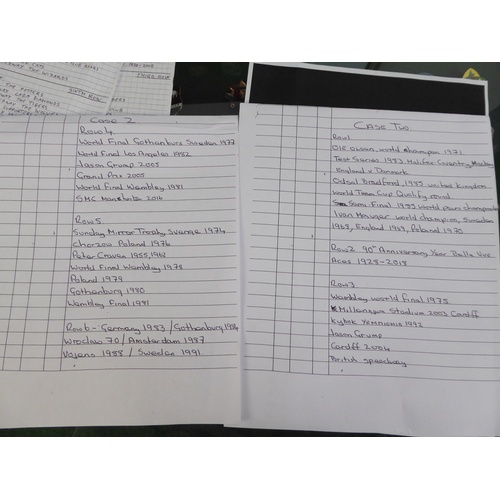 THIRD ROW
SIXTH ROW
Case 2
Row 4
World Final Gothenburg Sweden 1977
World Final Los Angeles 1982
Jason Crump 2005
Grand Prix 2005
World Final Wembley 1981
SMC 2014
Row 5
Sunday Mirror Trophy 1974
Chorzow Poland 1976
Peter Craven 1955, 1962
World Final Wembley 1978
Poland 1979
Gothenburg 1980
Wembley Final 1981
Row 6 - Germany 1983 / Gothenburg 1984
Wroclaw 70 / Amsterdam 1987
Vojens 1988 / Sweden 1991
CASE TWO
Row 1
Ole Olsen world champion 1971
Test Series 1983 Halifax Coventry
England v Denmark
Odsal Bradford, 1985 united Kingdom
World Team Cup Qualify round
Semi Final 1955 world champions
Ivan Mauger world champion, Sweden
1968, England 1969, Poland 1970
Row 2 90th Anniversary Year Belle Vue
Aces 1928-2018
Row 3
Wembley world final 1975
Millennium Stadium 2003 Cardiff
1992
Jason Crump
Cardiff 2004
British speedway